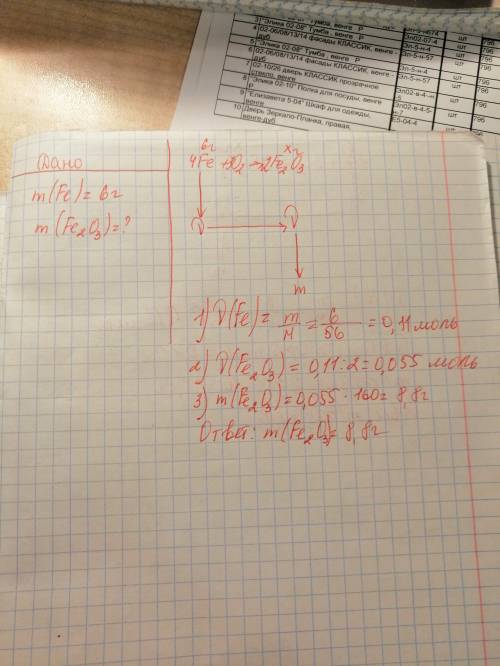 3) "Элика 02-08" Тумба, венге Р
4 02-06/08/13/14 фасады КЛАССИК, венге - дуб
5 "Элика 02-08" Тумба , венге Р
6 02-06/08/13/14 фасады КЛАССИК, венге - дуб
7 02-10/26 дверь КЛАССИК прозрачное стекло, венге
8 "Элика 02-10" Полка для посуды, венге Р
9 "Елизавета 5-04" Шкаф для одежды, венге
10 Дверь Зеркало-Планка, правая, венге-дуб
Эл02-07-4
Эл-5-н-4
Эл-5-н-57
Е5-04-4
шт 796
шт 796
шт 796
шт 796
шт 796
шт 796
шт 796
Дано
m(Fe) = 6г
m(Fe2O3) = ?
6г xг
4Fe + 3O2 → 2Fe2O3
ν → ν
m
1) ν(Fe) = m/M = 6/56 = 0,11 моль
2) ν(Fe2O3) = 0,11 : 2 = 0,055 моль
3) m(Fe2O3) = 0,055 · 160 = 8,8г
Ответ: m(Fe2O3) = 8,8г